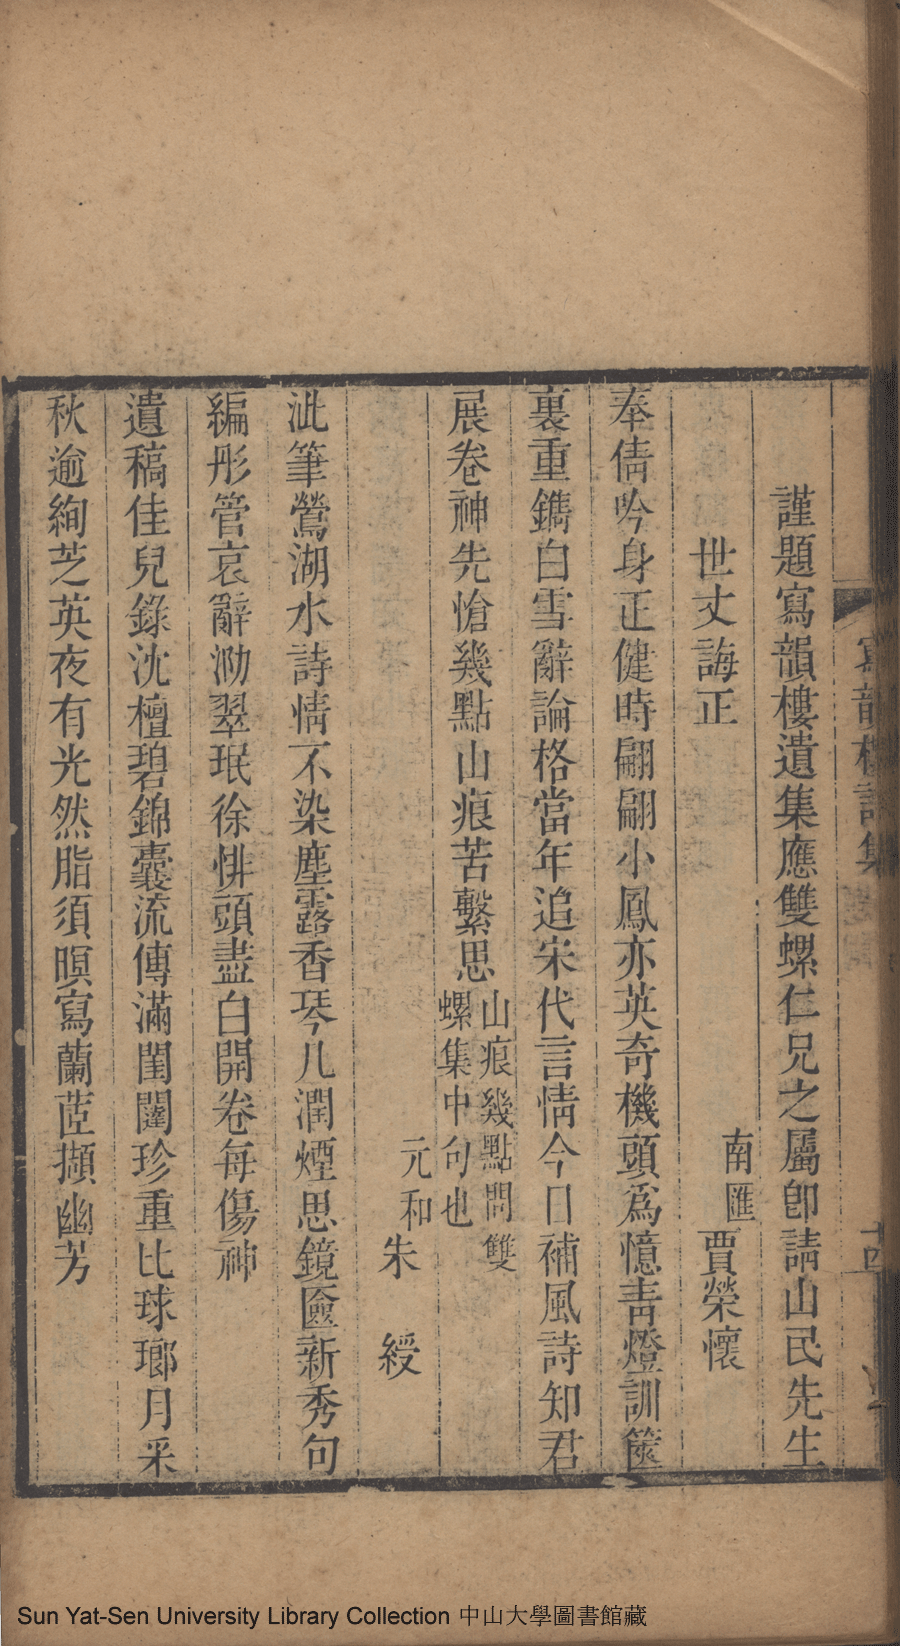 謹題寫韻樓遺集應雙螺仁兄之屬卽請山民先生
世丈誨正
南匯賈榮懷
奉倩吟身正健時翩翩小鳳亦英奇機頭爲憶靑燈訓篋
裏重鐫白雪辭論格當年追宋代言情今日補風詩知君
展卷神先愴幾點山痕苦繫思
山痕幾點問雙
螺集中句也
元和朱 綬
泚筆鶯湖水詩情不染塵露香琴几潤煙思鏡匳新秀句
編彤管哀辭泐翠珉徐悱頭盡白開卷每傷神
遺稿佳兒錄沈檀碧錦囊流傳滿閨闥珍重比球瑯月采
秋逾絢芝英夜有光然脂須暝寫蘭茝擷幽芳
寫韻樓詩集
十四
Sun Yat-Sen University Library Collection 中山大學圖書館藏